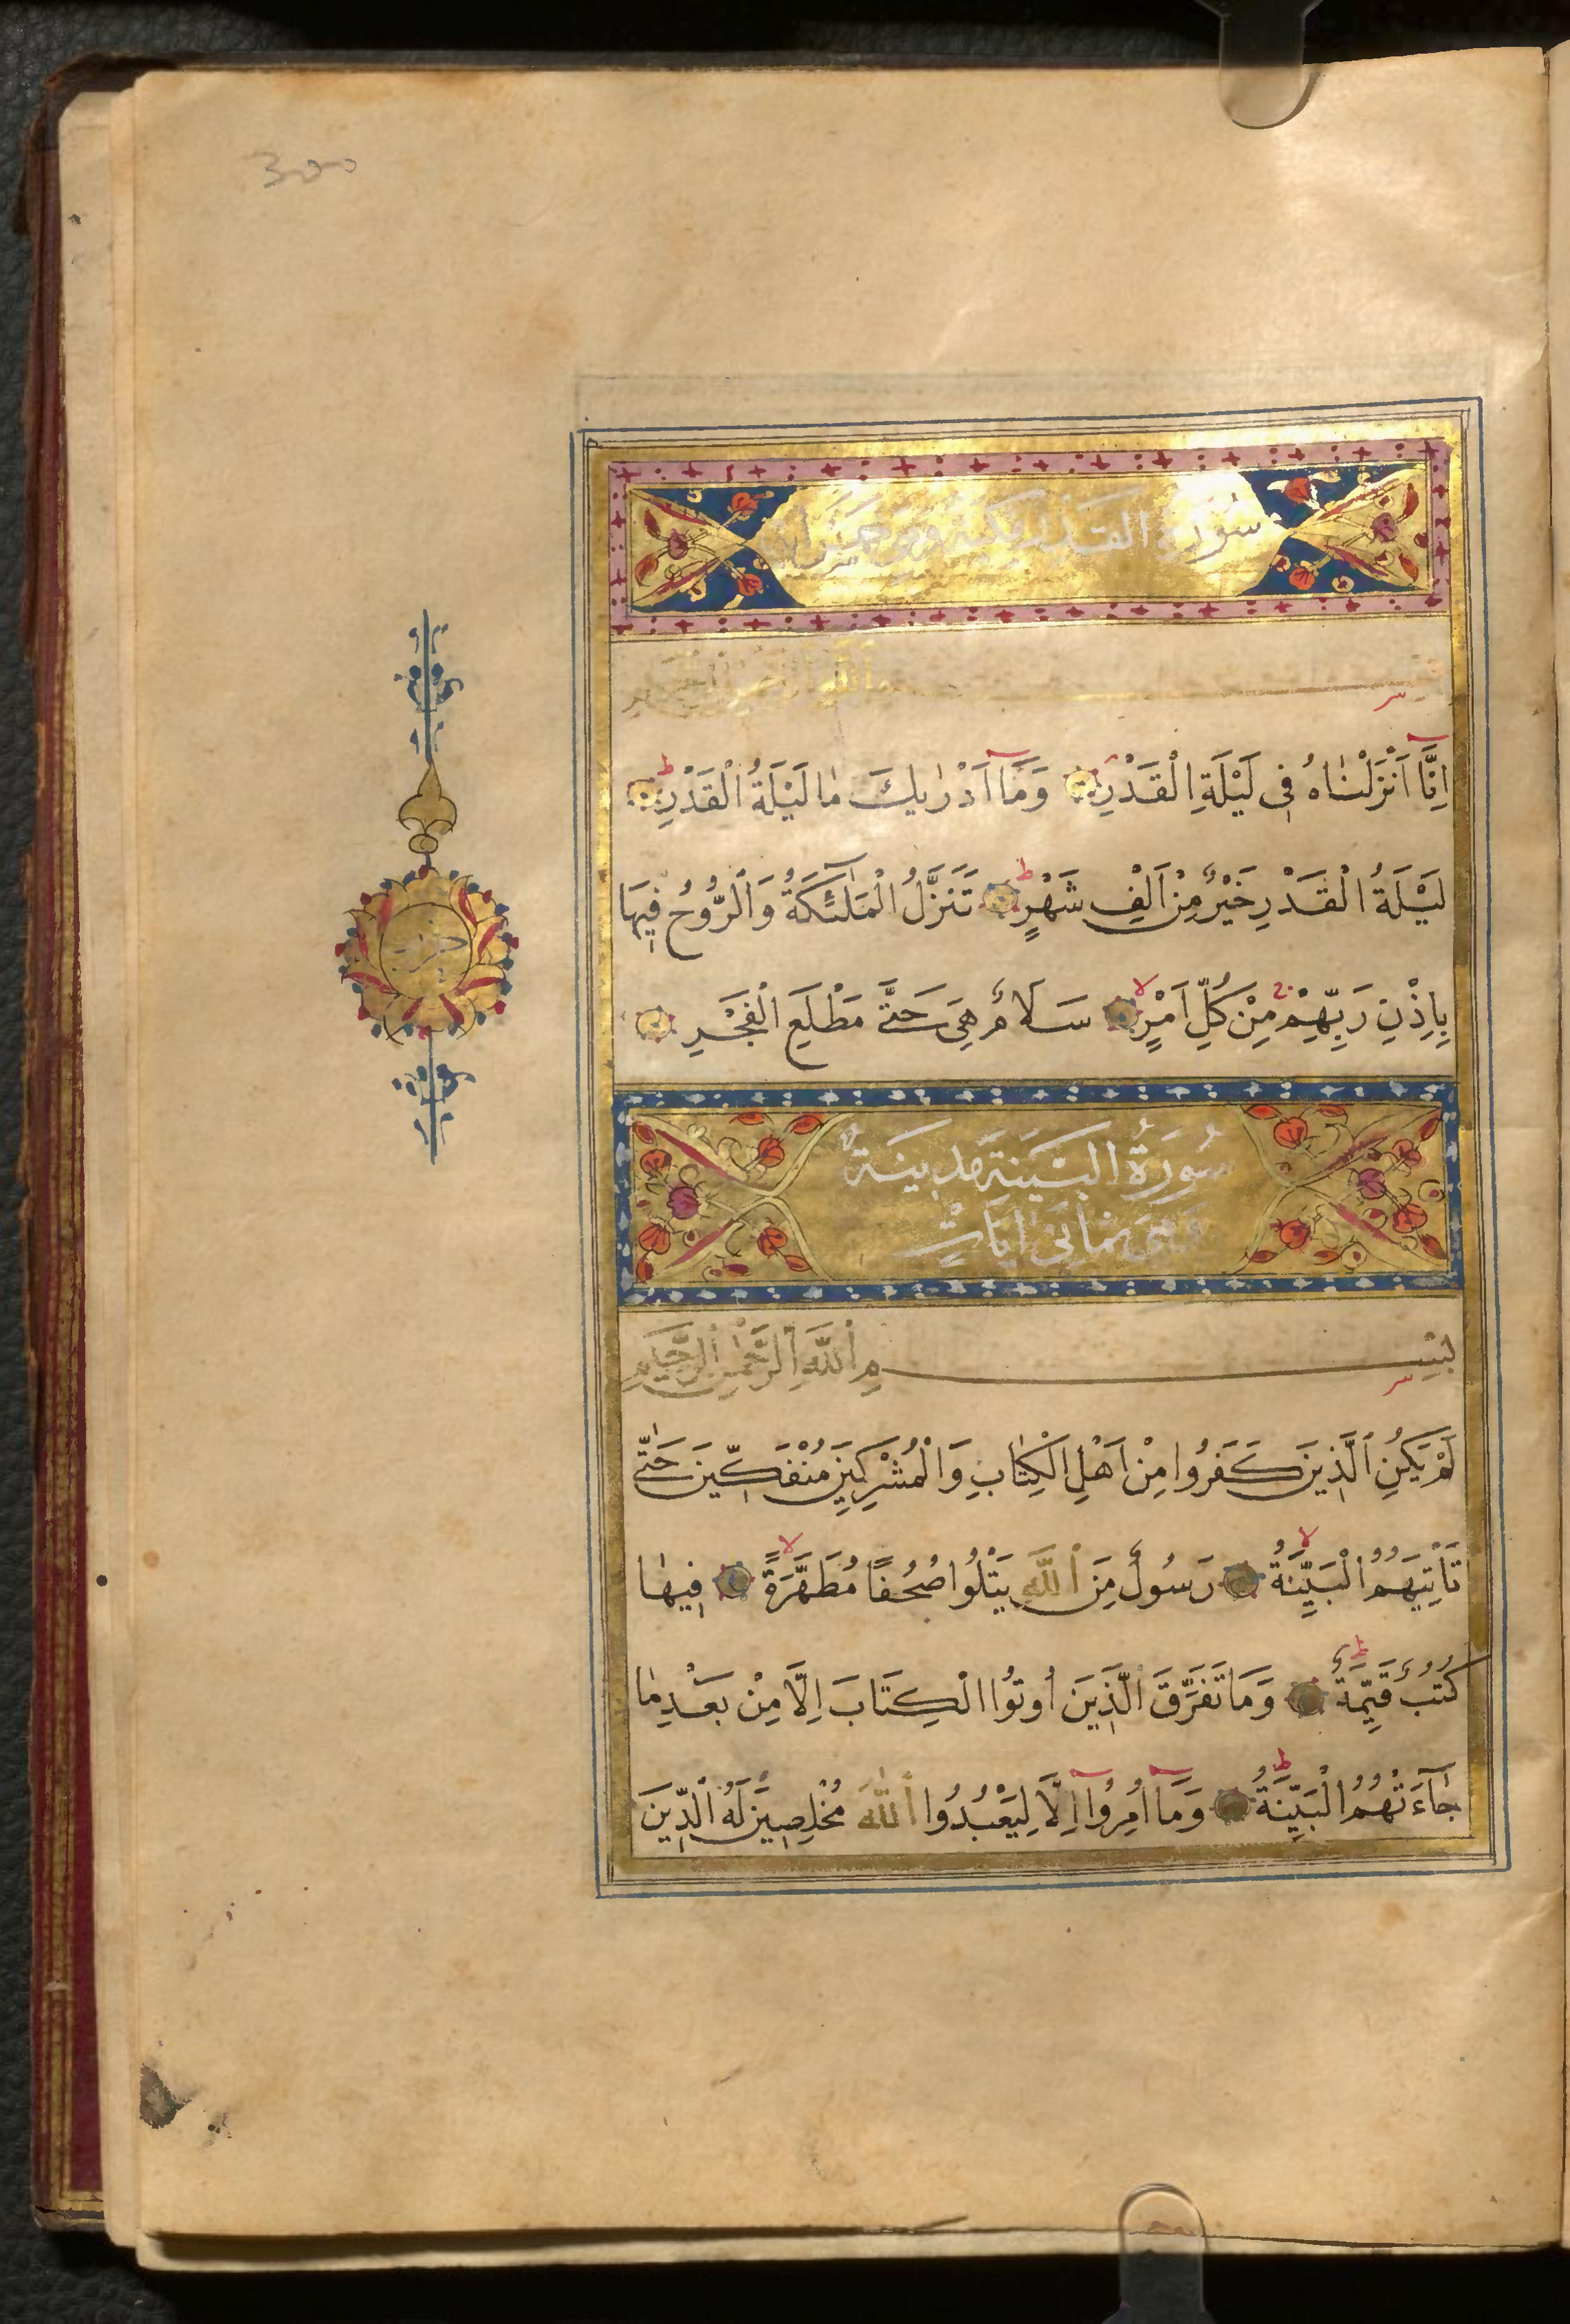 300
سُورَةُ القدر مكية وهى خمس آيات
بِسْمِ اللَّهِ الرَّحْمٰنِ الرَّحِيمِ
اِنَّا اَنْزَلْنَاهُ فِى لَيْلَةِ الْقَدْرِ وَمَا اَدْرٰيكَ مٰا لَيْلَةُ الْقَدْرِ
لَيْلَةُ الْقَدْرِ خَيْرٌ مِنْ اَلْفِ شَهْرٍ تَنَزَّلُ الْمَلٰئِكَةُ وَالرُّوحُ فِيهَا
بِاِذْنِ رَبِّهِمْ مِنْ كُلِّ اَمْرٍ سَلَامٌ هِىَ حَتَّى مَطْلَعِ الْفَجْرِ
سُورَةُ البَيِّنَةِ مَدِينَةٌ
وَهِىَ ثمانى اٰيَاتٍ
بِسْمِ اللَّهِ الرَّحْمٰنِ الرَّحِيمِ
لَمْ يَكُنِ الَّذِينَ كَفَرُوا مِنْ اَهْلِ الْكِتٰابِ وَالْمُشْرِكِينَ مُنْفَكِّينَ حَتّٰى
تَاْتِيَهُمُ الْبَيِّنَةُ رَسُولٌ مِنَ اللَّهِ يَتْلُوا صُحُفًا مُطَهَّرَةً فِيهٰا
كُتُبٌ قَيِّمَةٌ وَمَا تَفَرَّقَ الَّذِينَ اُوتُوا الْكِتَابَ اِلَّا مِنْ بَعْدِ مٰا
جَآءَتْهُمُ الْبَيِّنَةُ وَمَا اُمِرُوا اِلَّا لِيَعْبُدُوا اللّٰهَ مُخْلِصِينَ لَهُ الدِّينَ